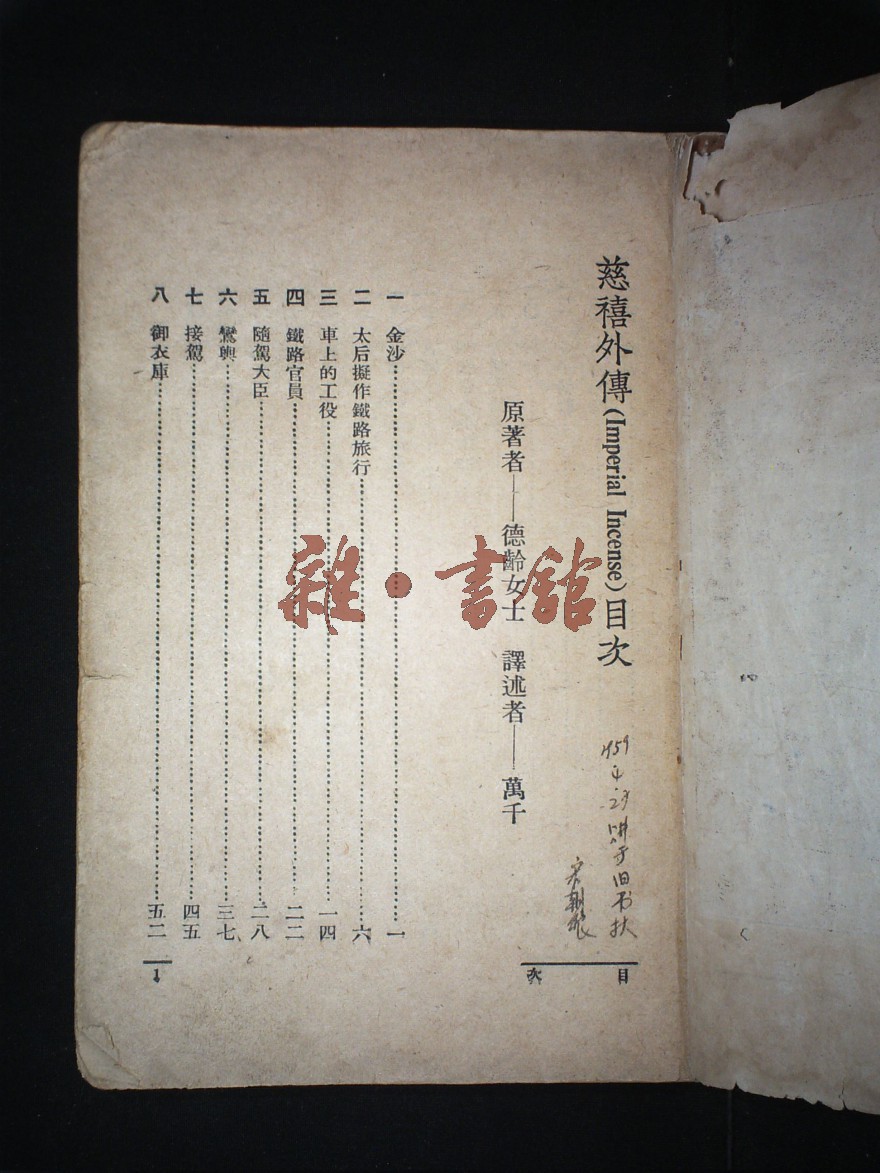 慈禧外傳(Imperial Incense)目次
原著者——德齡女士 譯述者——萬千
一 金沙……一
二 太后擬作鐵路旅行……六
三 車上的工役……一四
四 鐵路官員……二二
五 隨駕大臣……二八
六 鸞輿……三七
七 接駕……四五
八 御衣庫……五二
目次
1
雜·書舘